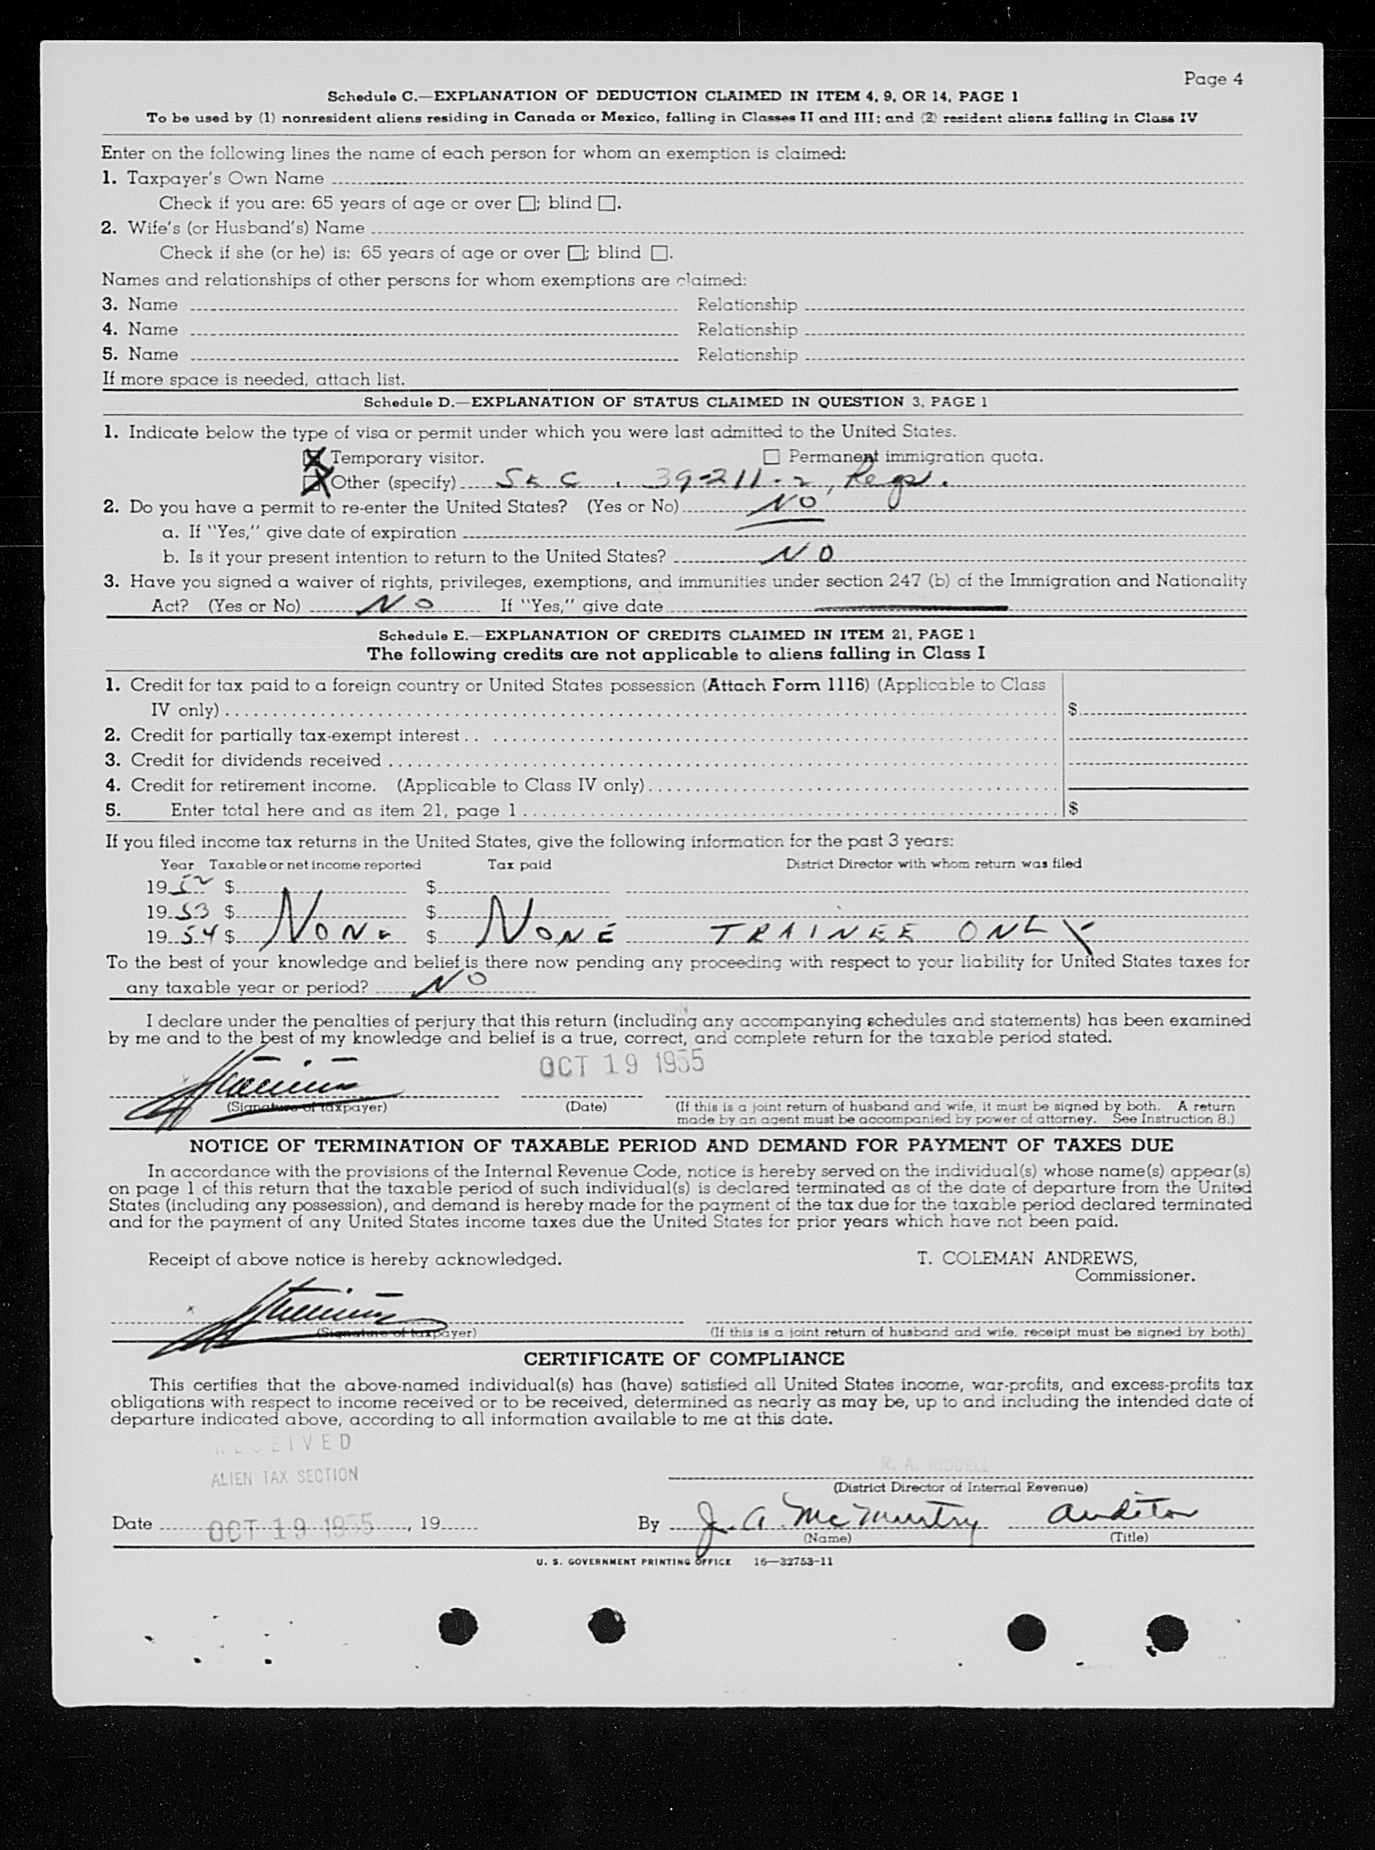 Page 4
Schedule C.—EXPLANATION OF DEDUCTION CLAIMED IN ITEM 4, 9, OR 14, PAGE 1
To be used by (1) nonresident aliens residing in Canada or Mexico, falling in Classes II and III; and (2) resident aliens falling in Class IV
Enter on the following lines the name of each person for whom an exemption is claimed:
1. Taxpayer's Own Name
Check if you are: 65 years of age or over ☐; blind ☐.
2. Wife's (or Husband's) Name
Check if she (or he) is: 65 years of age or over ☐; blind ☐.
Names and relationships of other persons for whom exemptions are claimed:
3. Name Relationship
4. Name Relationship
5. Name Relationship
If more space is needed, attach list.
Schedule D.—EXPLANATION OF STATUS CLAIMED IN QUESTION 3, PAGE 1
1. Indicate below the type of visa or permit under which you were last admitted to the United States.
☒ Temporary visitor. ☐ Permanent immigration quota.
☒ Other (specify) SEC. 39-211-2, Regs.
2. Do you have a permit to re-enter the United States? (Yes or No) NO
a. If "Yes," give date of expiration
b. Is it your present intention to return to the United States? NO
3. Have you signed a waiver of rights, privileges, exemptions, and immunities under section 247 (b) of the Immigration and Nationality
Act? (Yes or No) NO If "Yes," give date
Schedule E.—EXPLANATION OF CREDITS CLAIMED IN ITEM 21, PAGE 1
The following credits are not applicable to aliens falling in Class I
1. Credit for tax paid to a foreign country or United States possession (Attach Form 1116) (Applicable to Class
IV only) $
2. Credit for partially tax-exempt interest
3. Credit for dividends received
4. Credit for retirement income. (Applicable to Class IV only)
5. Enter total here and as item 21, page 1 $
If you filed income tax returns in the United States, give the following information for the past 3 years:
Year Taxable or net income reported Tax paid District Director with whom return was filed
1952 $ $
1953 $ $
1954 $ NONE $ NONE TRAINEE ONLY
To the best of your knowledge and belief is there now pending any proceeding with respect to your liability for United States taxes for
any taxable year or period? NO
I declare under the penalties of perjury that this return (including any accompanying schedules and statements) has been examined
by me and to the best of my knowledge and belief is a true, correct, and complete return for the taxable period stated.
OCT 19 1955
(Signature of taxpayer) (Date) (If this is a joint return of husband and wife, it must be signed by both. A return
made by an agent must be accompanied by power of attorney. See Instruction 8.)
NOTICE OF TERMINATION OF TAXABLE PERIOD AND DEMAND FOR PAYMENT OF TAXES DUE
In accordance with the provisions of the Internal Revenue Code, notice is hereby served on the individual(s) whose name(s) appear(s)
on page 1 of this return that the taxable period of such individual(s) is declared terminated as of the date of departure from the United
States (including any possession), and demand is hereby made for the payment of the tax due for the taxable period declared terminated
and for the payment of any United States income taxes due the United States for prior years which have not been paid.
Receipt of above notice is hereby acknowledged. T. COLEMAN ANDREWS,
Commissioner.
(Signature of taxpayer) (If this is a joint return of husband and wife, receipt must be signed by both)
CERTIFICATE OF COMPLIANCE
This certifies that the above-named individual(s) has (have) satisfied all United States income, war-profits, and excess-profits tax
obligations with respect to income received or to be received, determined as nearly as may be, up to and including the intended date of
departure indicated above, according to all information available to me at this date.
RECEIVED
ALIEN TAX SECTION R. A. RIDDELL
(District Director of Internal Revenue)
Date OCT 19 1955, 19 By J. A. McMurtry Auditor
(Name) (Title)
U. S. GOVERNMENT PRINTING OFFICE 16—32753-11